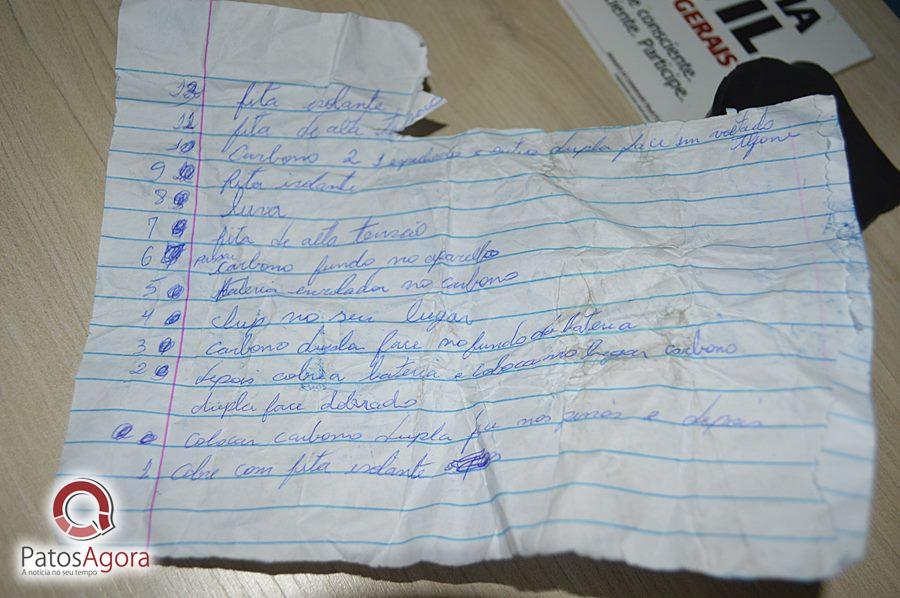 IA
IL
e consciente.
GERAIS
ciente. Participe.
12 fita isolante
11 fita de alta
10 Carbono 2 1 e outro dupla face em voltado
9 fita isolante
8 luva
7 fita de alta tenzão
6 carbono fundo no aparelho
5 Bateria enrolada no carbono
4 chip no seu lugar
3 carbono dupla face no fundo da bateria
2 depois cobrea bateria e coloca no lugar carbono
dupla face dobrado
colocar carbono dupla face nos pinos e depois
1 Cobre com fita isolante
PatosAgora
A notícia no seu tempo